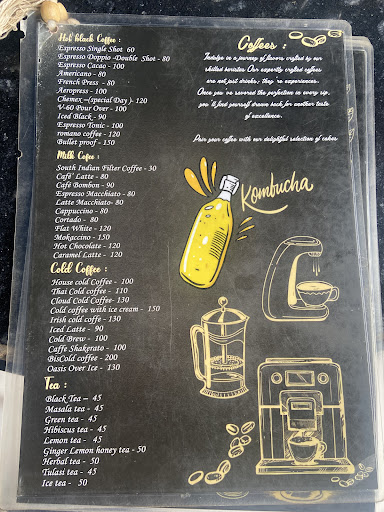 Hot black Coffee :
Espresso Single Shot 60
Espresso Doppio -Double Shot - 80
Espresso Cacao - 100
Americano - 80
French Press - 80
Aeropress - 100
Chemex –(special Day )- 120
V-60 Pour Over - 100
Iced Black - 90
Espresso Tonic - 100
romano coffee - 120
Bullet proof - 150
Milk Cofee :
South Indian Filter Coffee - 30
Café' Latte - 80
Café Bombon - 90
Espresso Macchiato - 80
Latte Macchiato- 80
Cappuccino - 80
Cortado - 80
Flat White - 120
Mokaccino - 150
Hot Chocolate - 120
Caramel Latte - 120
Cold Coffee :
House cold Coffee - 100
Thai Cold coffee - 110
Cloud Cold Coffee- 130
Cold coffee with ice cream - 150
Irish cold coffe - 130
Iced Latte - 90
Cold Brew - 100
Caffe Shakerato - 100
BisCold coffee - 200
Oasis Over Ice - 130
Tea :
Black Tea – 45
Masala tea - 45
Green tea - 45
Hibiscus tea - 45
Lemon tea - 45
Ginger Lemon honey tea - 50
Herbal tea - 50
Tulasi tea - 45
Ice tea - 50
Coffees :
Indulge in a journey of flavors crafted by our
skilled baristas. Our expertly crafted coffees
are not just drinks; they're experiences.
Once you've savored the perfection in every sip,
you'll find yourself drawn back for another taste
of excellence.
Pair your coffee with our delightful selection of cakes.
Kombucha